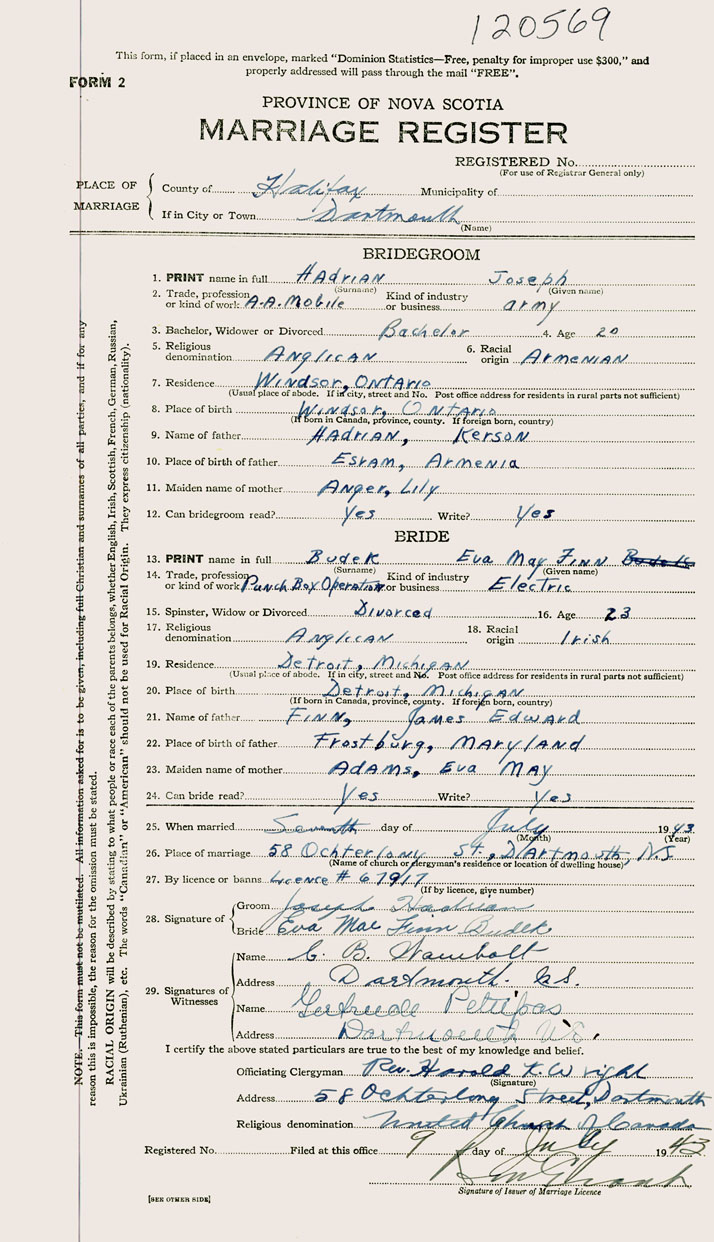 120569
This form, if placed in an envelope, marked “Dominion Statistics—Free, penalty for improper use $300,” and
properly addressed will pass through the mail “FREE”.
FORM 2
PROVINCE OF NOVA SCOTIA
MARRIAGE REGISTER
REGISTERED No.
(For use of Registrar General only)
PLACE OF MARRIAGE
County of Halifax Municipality of
If in City or Town Dartmouth
(Name)
BRIDEGROOM
1. PRINT name in full HAdrian Joseph
(Surname) (Given name)
2. Trade, profession or kind of work A.A. Mobile Kind of industry or business army
3. Bachelor, Widower or Divorced Bachelor 4. Age 20
5. Religious denomination Anglican 6. Racial origin Armenian
7. Residence Windsor, Ontario
(Usual place of abode. If in city, street and No. Post office address for residents in rural parts not sufficient)
8. Place of birth Windsor, Ontario
(If born in Canada, province, county. If foreign born, country)
9. Name of father HAdrian, Kerson
10. Place of birth of father Esram, Armenia
11. Maiden name of mother Anger, Lily
12. Can bridegroom read? Yes Write? Yes
BRIDE
13. PRINT name in full Budek Eva May Finn Budek
(Surname) (Given name)
14. Trade, profession or kind of work Punch Box Operator Kind of industry or business Electric
15. Spinster, Widow or Divorced Divorced 16. Age 23
17. Religious denomination Anglican 18. Racial origin Irish
19. Residence Detroit, Michigan
(Usual place of abode. If in city, street and No. Post office address for residents in rural parts not sufficient)
20. Place of birth Detroit, Michigan
(If born in Canada, province, county. If foreign born, country)
21. Name of father Finn, James Edward
22. Place of birth of father Frostburg, Maryland
23. Maiden name of mother Adams, Eva May
24. Can bride read? Yes Write? Yes
25. When married Seventh day of July 1943
(Month) (Year)
26. Place of marriage 58 Ochterlony St., Dartmouth, N.S
(Name of church or clergyman's residence or location of dwelling house)
27. By licence or banns Licence # 67917
(If by licence, give number)
28. Signature of
Groom Joseph Hadrian
Bride Eva Mae Finn Budek
29. Signatures of Witnesses
Name C. B. Wambolt
Address Dartmouth. N.S.
Name Gertrude Pettipas
Address Dartmouth N.S.
I certify the above stated particulars are true to the best of my knowledge and belief.
Officiating Clergyman Rev. Harold T. Wright
(Signature)
Address 58 Ochterlony Street, Dartmouth
Religious denomination United Church of Canada
Registered No. Filed at this office 9 day of July 1943.
Signature of Issuer of Marriage Licence
[SEE OTHER SIDE]
NOTE.—This form must not be mutilated. All information asked for is to be given, including full Christian and surnames of all parties, and if for any
reason this is impossible, the reason for the omission must be stated.
RACIAL ORIGIN will be described by stating to what people or race each of the parents belongs, whether English, Irish, Scottish, French, German, Russian,
Ukrainian (Ruthenian), etc. The words “Canadian” or “American” should not be used for Racial Origin. They express citizenship (nationality).